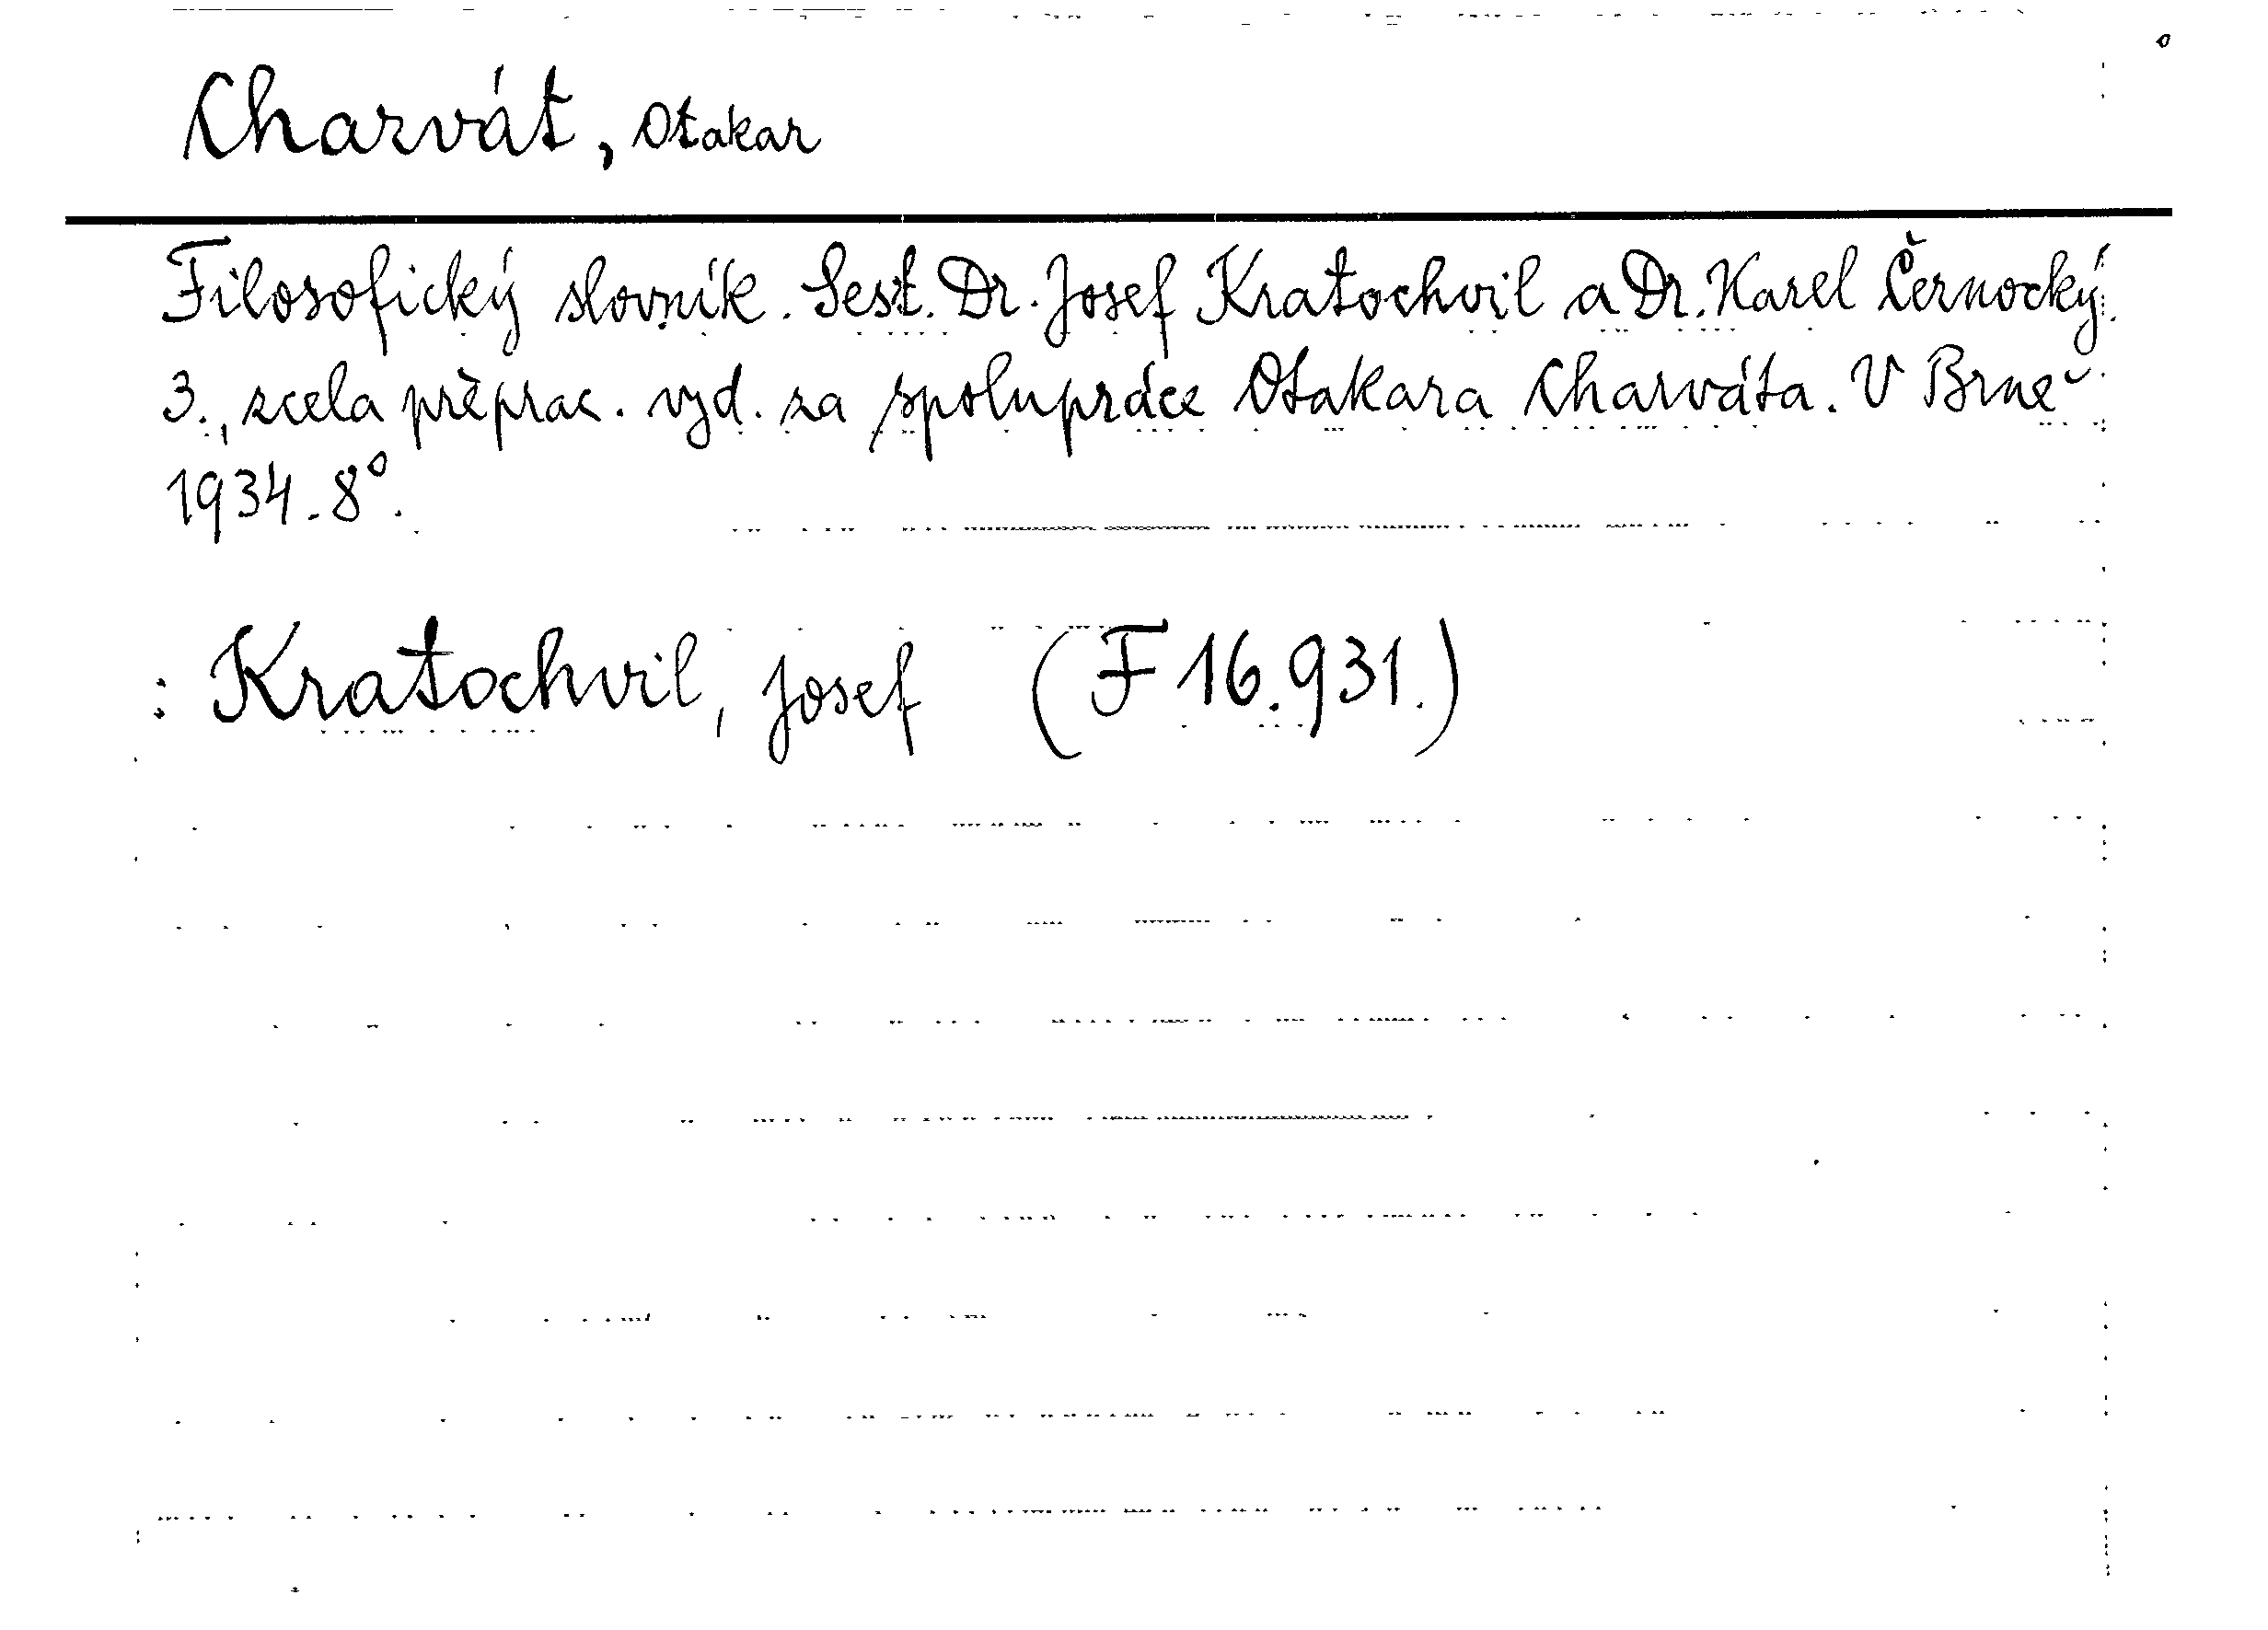 Charvát, Otakar
Filosofický slovník. Sest. Dr. Josef Kratochvil a Dr. Karel Černocký.
3., zcela přeprac. vyd. za spolupráce Otakara Charváta. V Brně
1934. 8°.
: Kratochvil, Josef (F 16.931.)